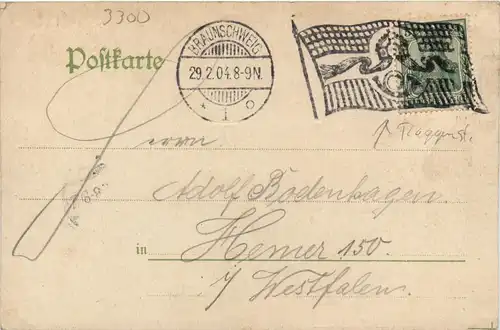 3300
Postkarte
BRAUNSCHWEIG
29.2.04.8-9N.
* 1 o
Flaggenst.
Herrn
Adolf Bodenhagen
in Hemer 150.
i/ Westfalen.